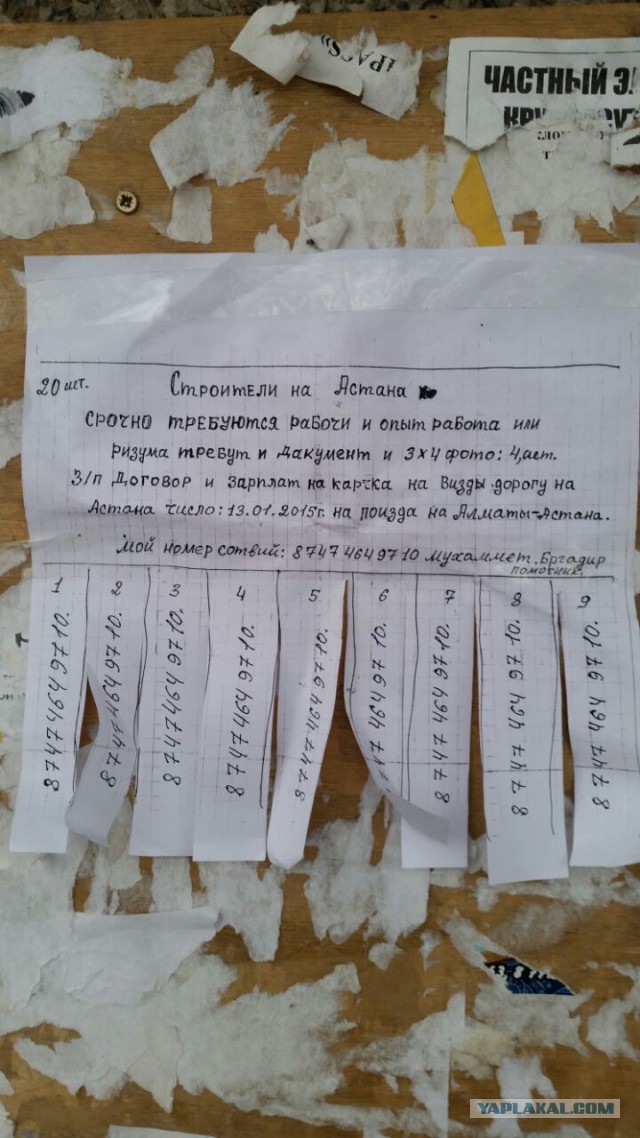 iPACS»
ЧАСТНЫЙ
20 шт. Строители на Астана
срочно требуются рабочи и опыт работа или
ризума требут и дакумент и 3х4 фото: 4,шт.
З/п Договор и зарплат на карчка на Визды дорогу на
Астана число: 13.01.2015г. на поизда на Алматы-Астана.
Мой номер сотвий: 87474649710 Мухаммет. Бргадир
помочник.
1 2 3 4 5 6 7 8 9
87474649710.
87474649710.
87474649710.
87474649710.
87474649710.
47 4649710.
87474649710.
87474649710.
87474649710.
YAPLAKAL.COM